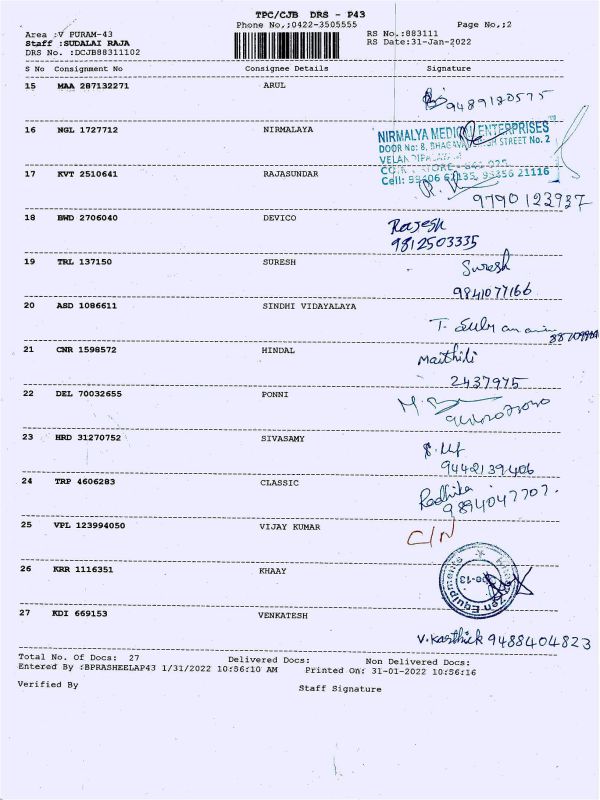 TPC/CJB DRS - P43
Phone No,;0422-3505555
Page No,;2
Area :V PURAM-43
RS No.:883111
Staff :SUDALAI RAJA
RS Date:31-Jan-2022
DRS No. :DCJB88311102
S No Consignment No Consignee Details Signature
15 MAA 287132271 ARUL
9489120575
16 NGL 1727712 NIRMALAYA
NIRMALYA MEDICAL ENTERPRISES
DOOR No: 8, STREET No. 2
17 KVT 2510641 RAJASUNDAR
9790123937
18 BWD 2706040 DEVICO
Rajesh
9812503335
19 TRL 137150 SURESH
Suresh
9841077166
20 ASD 1086611 SINDHI VIDAYALAYA
21 CNR 1598572 HINDAL
Maithili
2437975
22 DEL 70032655 PONNI
23 HRD 31270752 SIVASAMY
9442139406
24 TRP 4606283 CLASSIC
Radhika
9894047707.
25 VPL 123994050 VIJAY KUMAR
C/N
26 KRR 1116351 KHAAY
27 KDI 669153 VENKATESH
V.Karthick 9488404823
Total No. Of Docs: 27 Delivered Docs: Non Delivered Docs:
Entered By :BPRASHEELAP43 1/31/2022 10:56:10 AM Printed On: 31-01-2022 10:56:16
Verified By Staff Signature